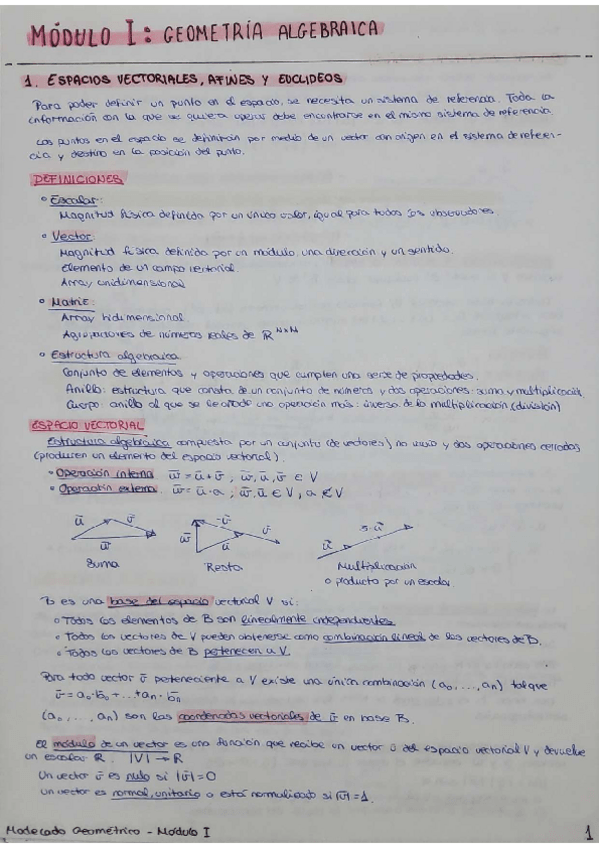 MÓDULO I: GEOMETRÍA ALGEBRAICA
1. ESPACIOS VECTORIALES, AFINES Y EUCLIDEOS
Para poder definir un punto en el espacio, se necesita un sistema de referencia. Toda la
información con la que se quiera operar debe encontrarse en el mismo sistema de referencia.
Los puntos en el espacio se definirán por medio de un vector con origen en el sistema de referen-
cia y destino en la posición del punto.
DEFINICIONES
° Escalar:
Magnitud física definida por un único valor, igual para todos los observadores.
° Vector:
Magnitud física definida por un módulo, una dirección y un sentido.
Elemento de un campo vectorial
Array unidimensional
° Matriz:
Array bidimensional
Agrupaciones de números reales de R^NxM
° Estructura algebraica
Conjunto de elementos y operaciones que cumplen una serie de propiedades.
Anillo: estructura que consta de un conjunto de números y dos operaciones: suma y multiplicación.
Cuerpo: anillo al que se le añade una operación más: inversa de la multiplicación (división)
ESPACIO VECTORIAL
Estructura algebraica compuesta por un conjunto (de vectores) no vacío y dos operaciones cerradas
(producen un elemento del espacio vectorial).
° Operación interna w̄ = ū + v̄ ; w̄, ū, v̄ ∈ V
° Operación externa. w̄ = ū · a ; w̄, ū ∈ V, a ∉ V
ū v̄ -v̄ v̄ 5·ū
w̄ w̄ ū ū
Suma Resta Multiplicación
o producto por un escalar
B es una base del espacio vectorial V si:
° Todos los elementos de B son linealmente independientes.
° Todos los vectores de V pueden obtenerse como combinación lineal de los vectores de B.
° Todos los vectores de B pertenecen a V.
Para todo vector v̄ perteneciente a V existe una única combinación (a₀, ..., aₙ) tal que
v̄ = a₀·b̄₀ + ... + aₙ·b̄ₙ
(a₀, ..., aₙ) son las coordenadas vectoriales de v̄ en base B.
El módulo de un vector es una función que recibe un vector v̄ del espacio vectorial V y devuelve
un escalar R. |V| → R
Un vector v̄ es nulo si |v̄| = 0
Un vector es normal, unitario o está normalizado si |v̄| = 1.
Modelado Geométrico - Módulo I
1